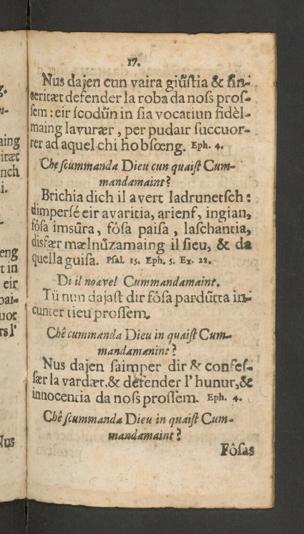 17.
Nus dajen cun vaira giüstia & sin-
seritæt defender la roba da noſs proſ-
ſem : eir ſcodün in ſia vocatiun fidèl-
maing lavurær, per pudair ſuccuor-
rer ad aquel chi ho bſœng. Eph. 4.
Che ſcummanda Dieu cun quaiſt Cum-
mandamaint?
Brichia dich il avert ladrunetſch :
dimperſé eir avaritia, arienſ, ingian,
fôſa imſüra, fôſa paiſa, laſchantia,
disfær mælnüzamaing il ſieu, & da
quella guiſa. Pſal. 15. Eph. 5. Ex. 22.
Di il noavel Cummandamaint.
Tü nun dajaſt dir fôſa pardütta in-
cunter tieu proſſem.
Chê cummanda Dieu in quaiſt Cum-
mandamanint?
Nus dajen ſaimper dir & confeſ-
ſær la vardæt, & defender l'hunur, &
innocentia da noſs proſſem. Eph. 4.
Chê ſcummanda Dieu in quaiſt Cum-
mandamaint?
Fôſas
g.
aing
itæt
nch
i.
eng
t in
eir
pai-
uor
rs l'
Nus